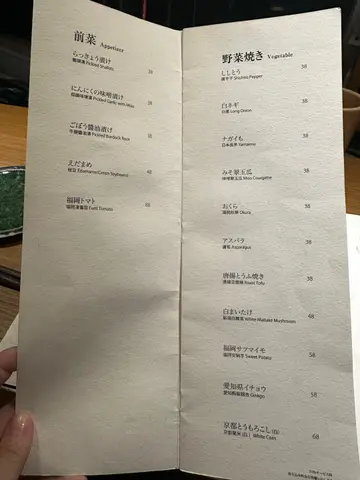 前菜 Appetizer
らっきょう漬け 38
Pickled Shallots
にんにくの味噌漬け 38
Pickled Garlic with Miso
ごぼう醤油漬け 38
Pickled Burdock Root
えだまめ 48
枝豆 Edamame(Green Soybeans)
福岡トマト 68
Fruit Tomato
野菜焼き Vegetable
ししとう 38
唐辛子 Shishito Pepper
白ネギ 38
白葱 Long Onion
ナガイも 38
日本長芋 Yamaimo
みそ翠玉瓜 38
味噌翠玉瓜 Miso Courgette
おくら 38
Okura
アスパラ 38
露筍 Asparagus
唐揚とうふ焼き 38
Roast Tofu
白まいたけ 68
White Maitake Mushroom
福岡サツマイモ 58
Sweet Potato
愛知県イチョウ 58
Ginkgo
京都とうもろこし (白) 68
京都粟米 (白) White Corn